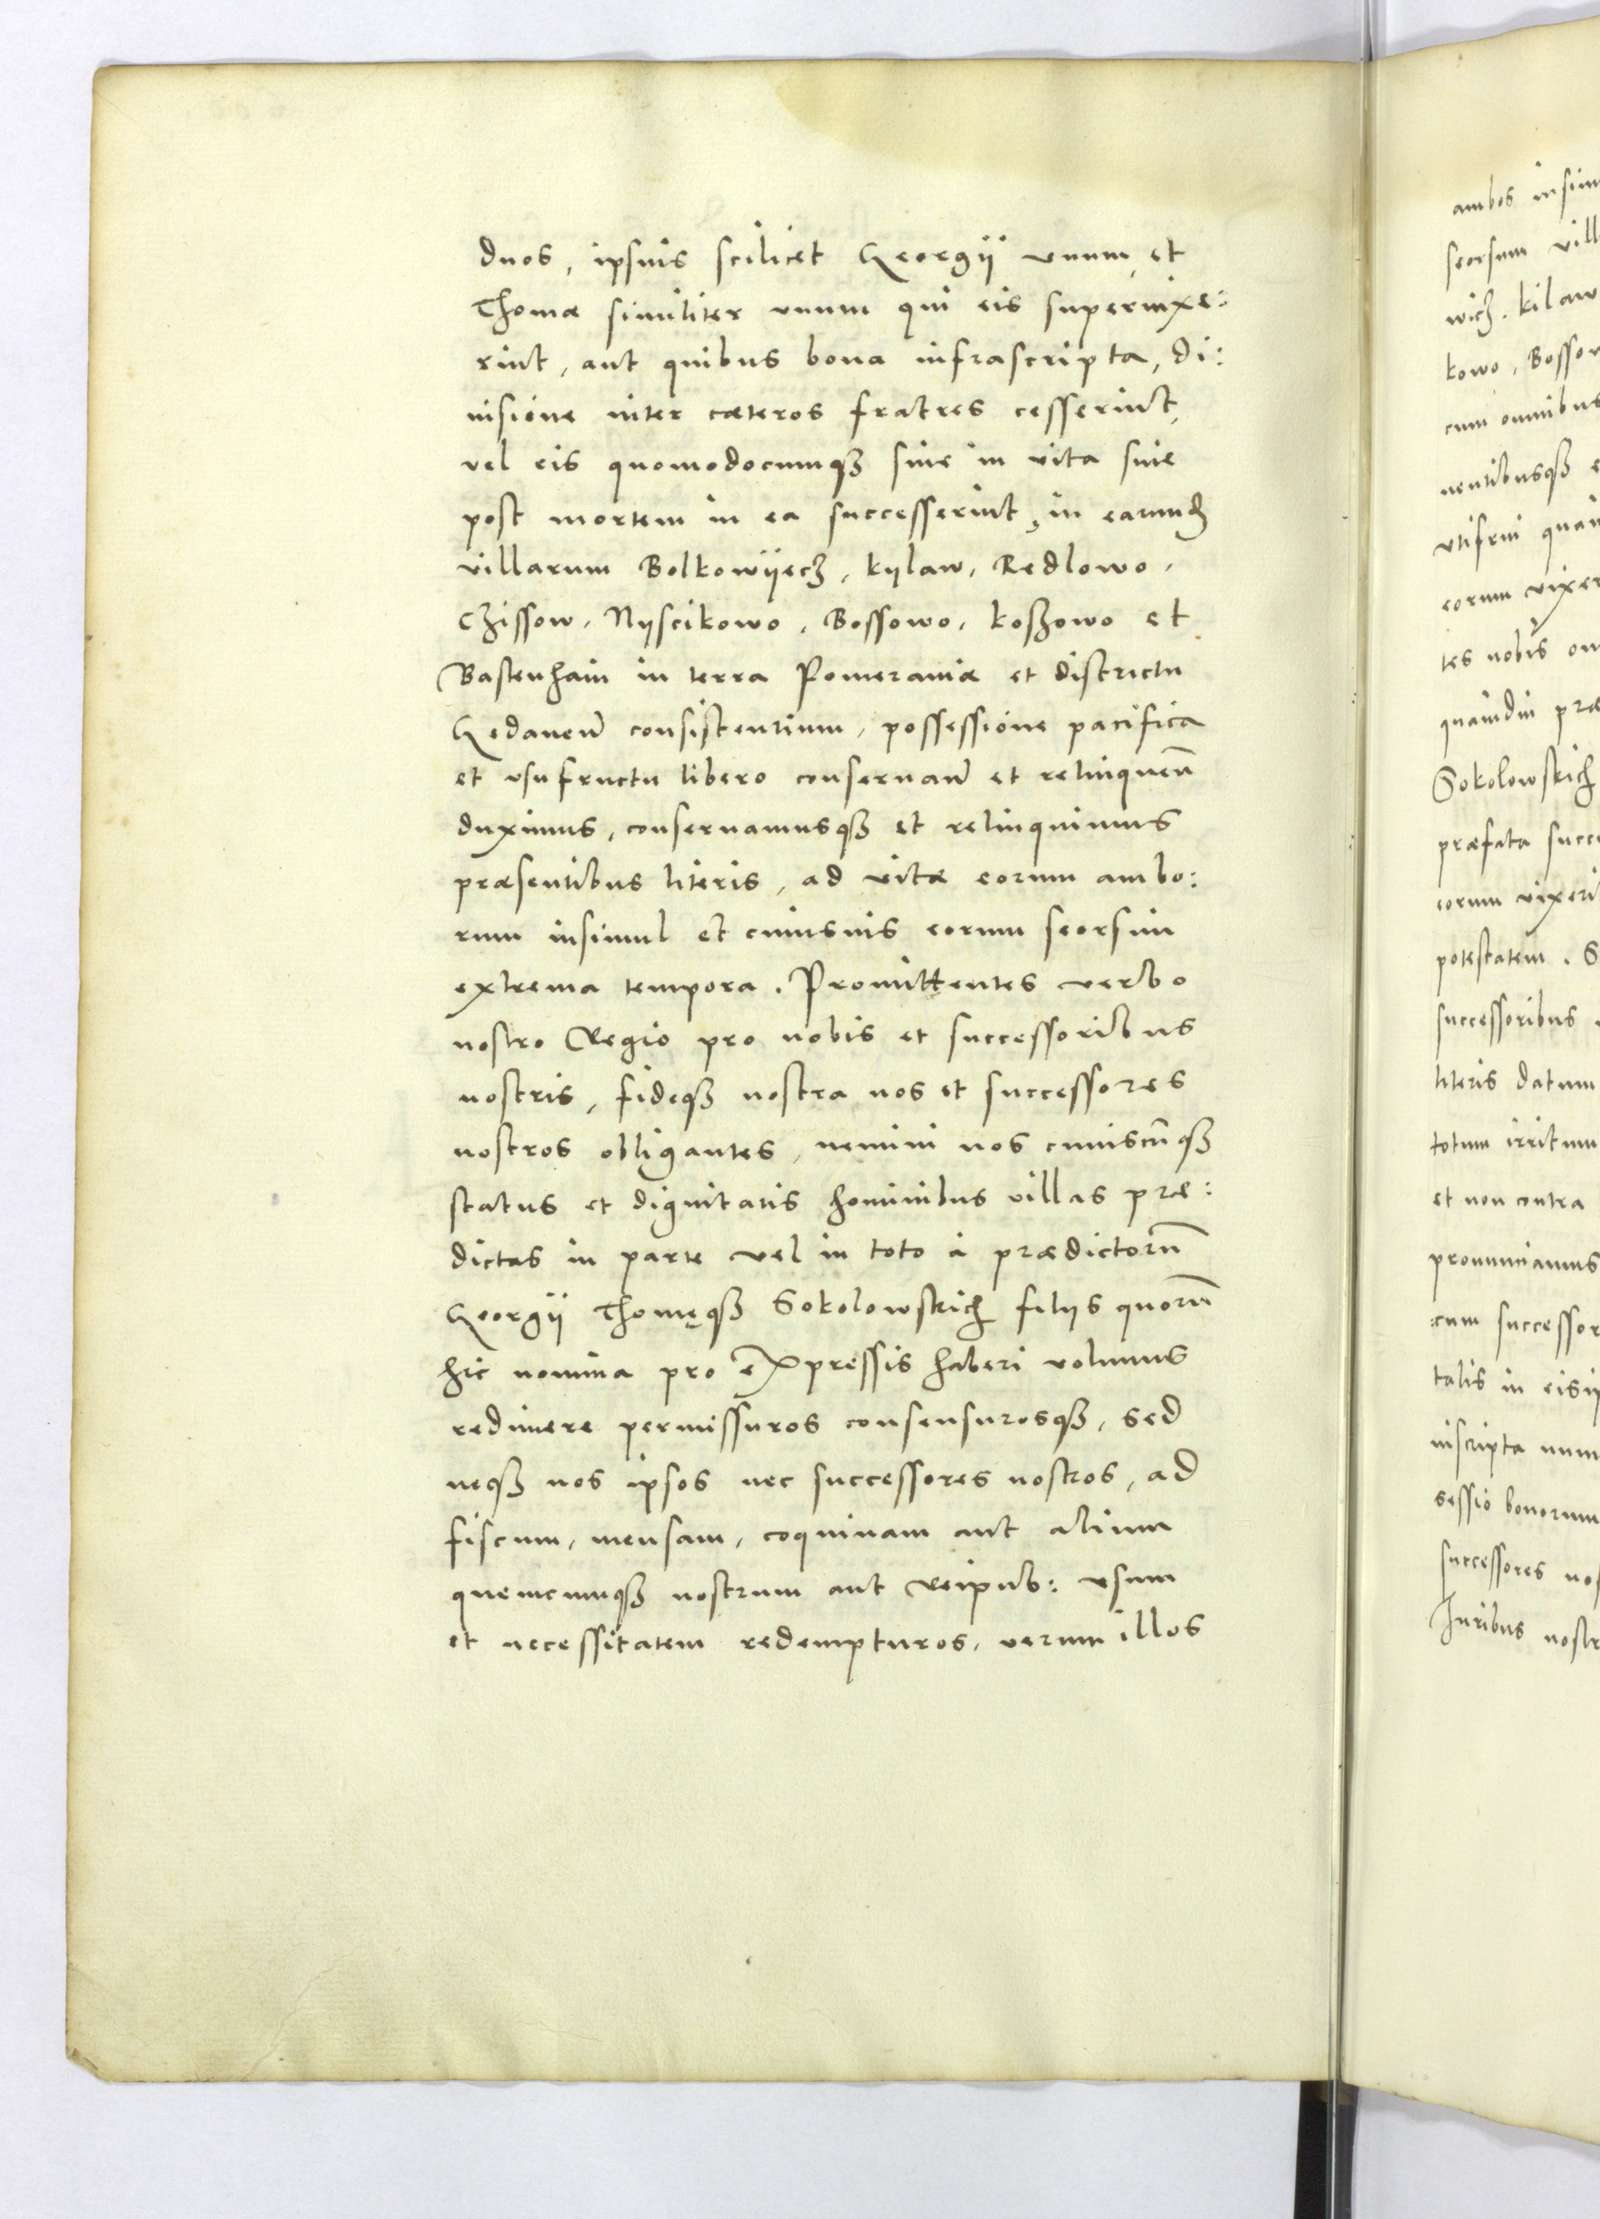 duos, ipsius scilicet Georgÿ unum, et
Thomæ similiter unum qui eis supervixe:
rint, aut quibus bona infrascripta, di:
uisione inter cæteros fratres cesserint,
vel eis quomodocumqꝫ siue in vita siue
post mortem in ea successerint, in earumd
villarum Bolkowÿecz, Kÿlaw, Redlowo,
Czissow, Nÿscikowo, Bossowo, Koszowo et
Bastenhain in terra Pomeraniæ et districtu
Gedanen̄ consistentium, possessione pacifica
et usufructu libero conseruan̄ et relinquen̄
duximus, conseruamusqꝫ et relinquimus
præsentibus literis, ad vitæ eorum ambo:
rum insimul et cuiusuis eorum seorsim
extrema tempora. Promittentes verbo
nostro Regio pro nobis et successoribus
nostris, fideqꝫ nostra nos et successores
nostros obligantes, nemini nos cuiuscūqꝫ
status et dignitatis hominibus villas præ:
dictas in parte vel in toto à prædictorū
Georgÿ Thomęqꝫ Sokolowskich filÿs quorū
hic nomina pro expressis haberi volumus
redimere permissuros consensurosqꝫ, sed
neqꝫ nos ipsos nec successores nostros, ad
fiscum, mensam, coquinam aut alium
quemcumqꝫ nostrum aut Reipub: usum
et necessitatem redempturos, verum illos
ambos insim
seorsum vill
wich. Kilaw
kowo, Bossow
cum omnibus
nentibusqꝫ e
utifrui quam
eorum vixer
tes nobis om
quamdiu præ
Sokolowskich
præfata succ
eorum vixeri
potestatem. S
successoribus
literis datum
totum irritum
et non contra
pronunciamus
cum successor
talis in eisÿ
inscripta num
sessio bonorum
successores nos
Juribus nostr